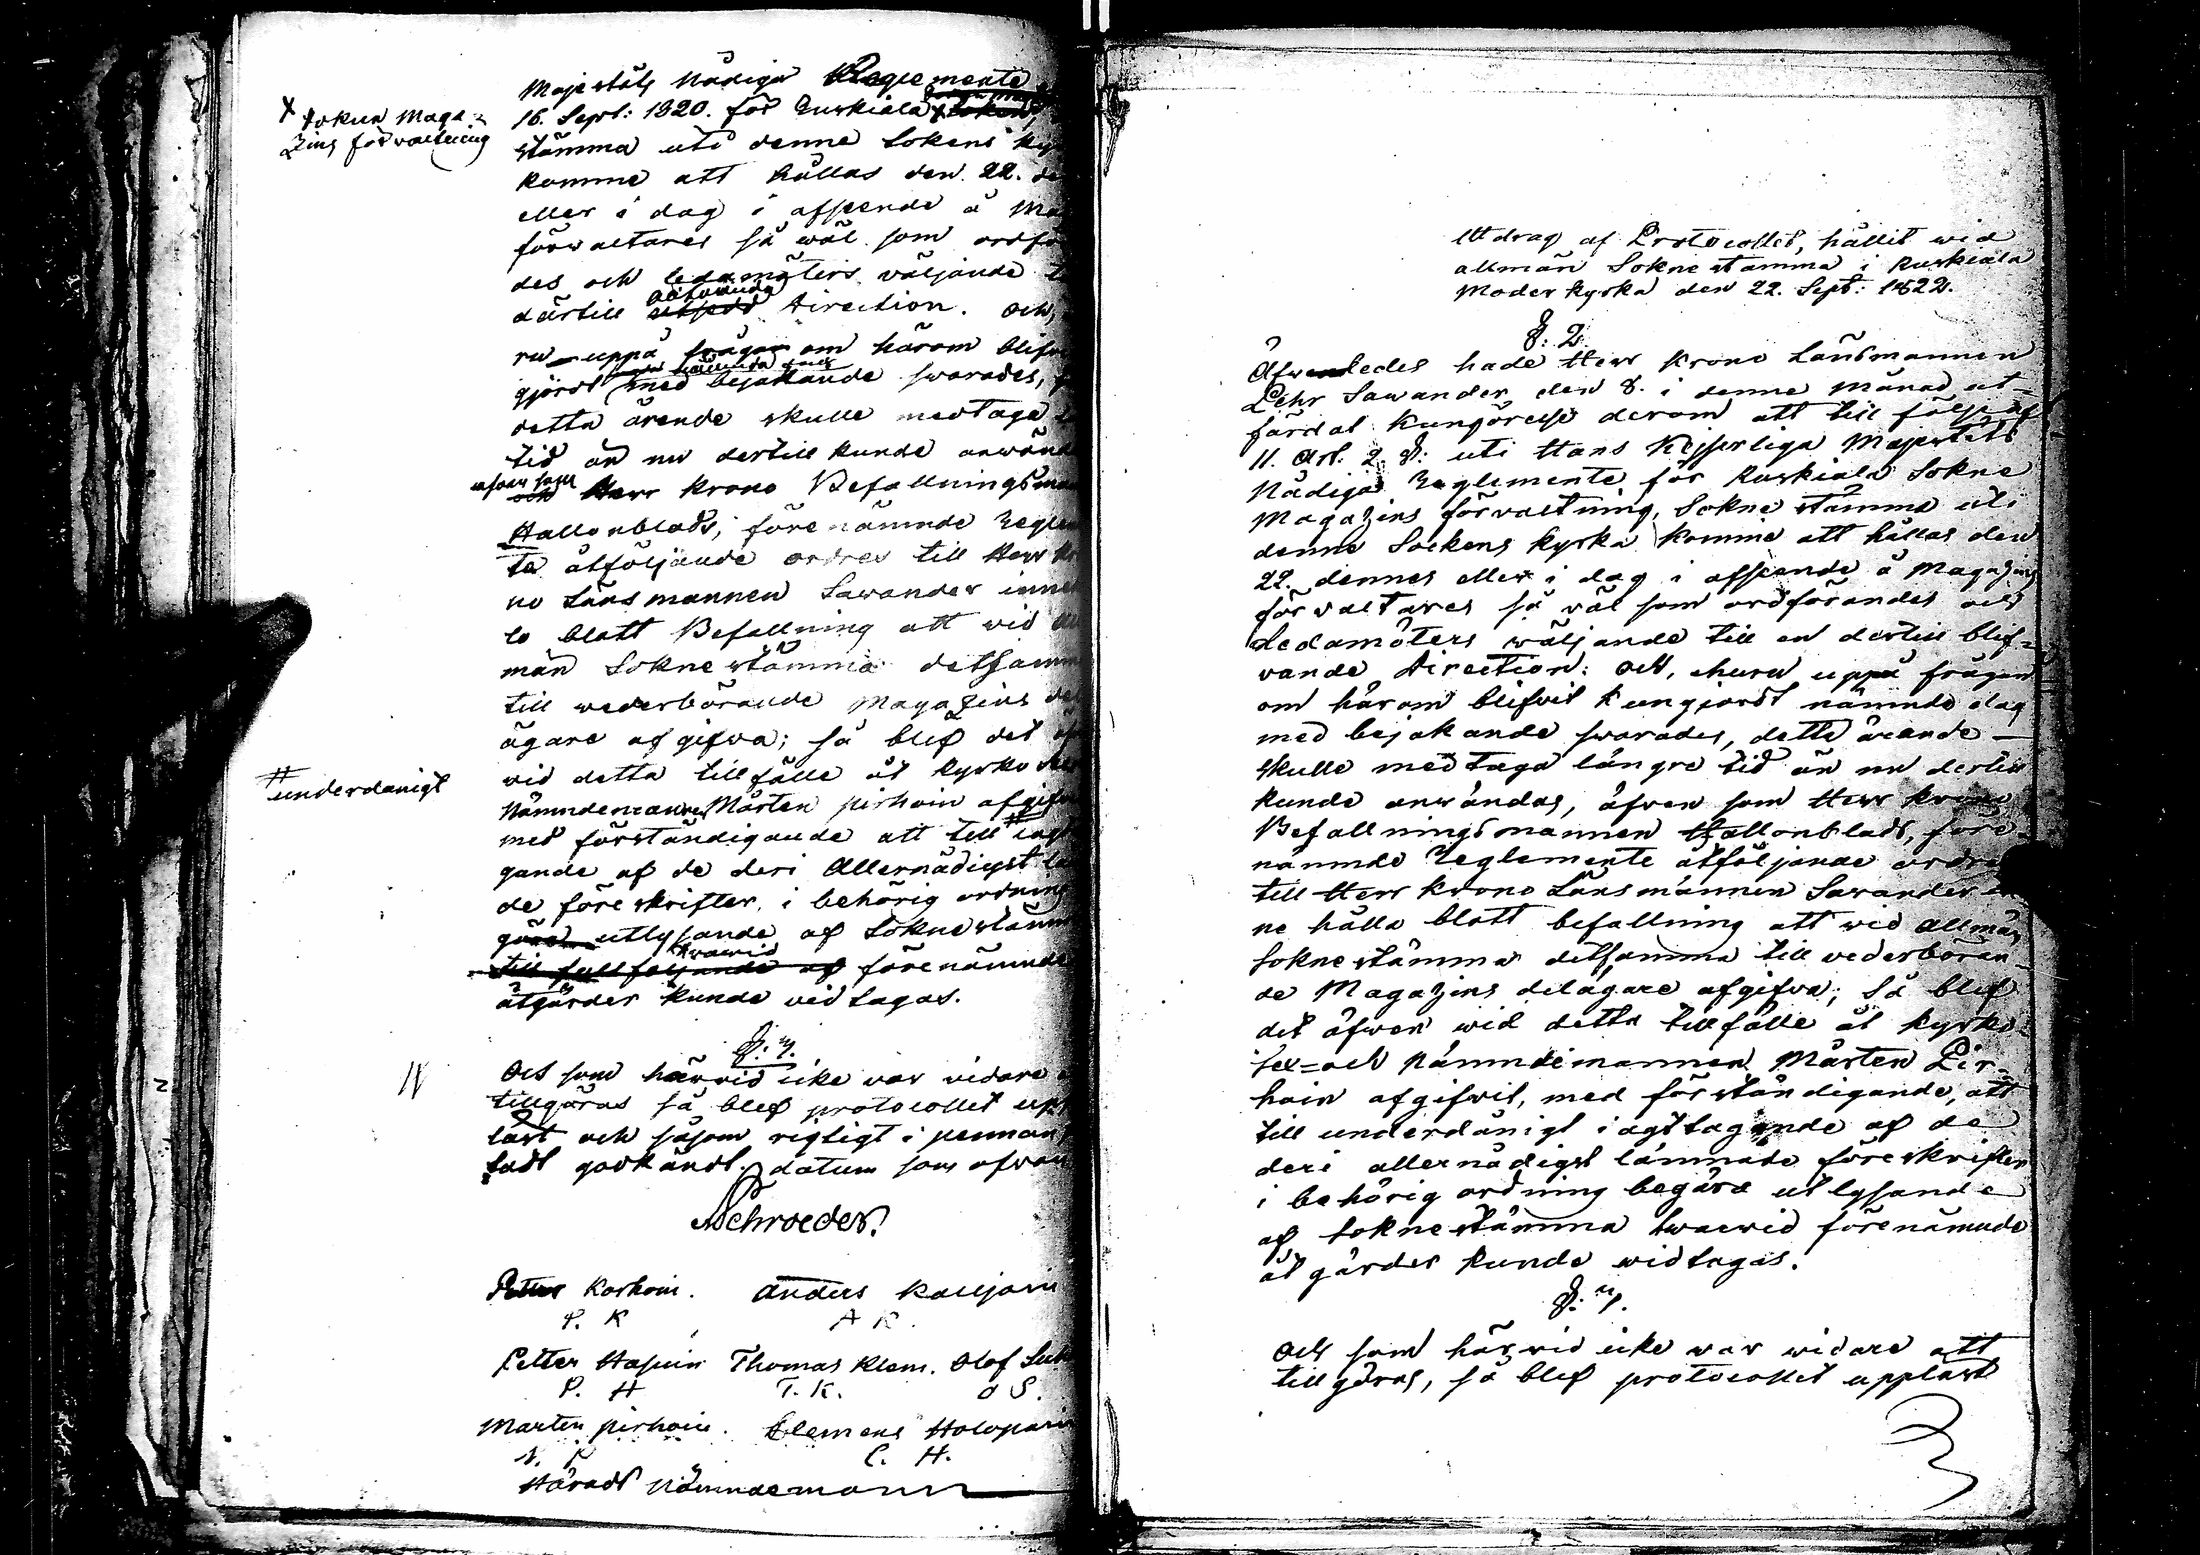 Majestäts Nådiga Reglemente
16. Sept: 1820. för Ruskiala Soken
x Sokne Maga=
zins förvaltning
stämma uti denne Sokens
komme att hållas den 22.
eller i dag i afseende å
förwaltares så wäl som
des och ledamöters väljande
därtill blifwande direction. och,
ru uppå frågan om härom
gjordt nämnde dag med bejakande swarades,
detta ärende skulle medtaga
tid än nu dertill kunde
äfven som Herr Krono Befallningsman
Hallonblads, förenämnde
te åtföljande ordres till Herr
no Länsmannen Sawander
le blott Befallning att wid
män Sokne stämma detsamma
till wederbörande Magazins
ägare afgifwa; så blef det
wid detta tillfälle åt Kyrko
# underdånigt
Nämndemannen Mårten pirhoin
med förständigande att till #
gande af de deri Allernådigst
de föreskrifter, i behörig ordning
utlysande af Sokne stämma
till fullföljande af hvarvid förenämnde
åtgärder kunde vidtagas.
§. 7.
Och som härvid icke var vidare
tillgöras så blef protocollet
läst och såsom rigtigt i pennan
fadt godkändt. datum som
Schroeder.
Petter Korhoin. Anders
P. K A K.
Petter Hapuin Thomas Klem. Olof
P. H T. K. O S.
Mårten pirhoin. Clemens
C. H.
Härads Nämndeman
Utdrag af Protocollet, hållit wid
allmän Sokne stämma i Ruskiala
Moder kyrka den 22. Sept: 1822.
§: 2.
Äfwenledes hade Herr Krono Länsmannen
Pehr Sawander den 8. i denne månad ut-
färdat Kungörelse derom att till följe af
11. Art. 2. §: uti Hans Kejserliga Majestäts
Nådiga Reglemente för Ruskiala Sokne
Magazins förvaltning, Sokne stämma uti
denne Sockens Kyrka komme att hållas den
22. dennes eller i dag i afseende å Magazins
förvaltares så väl som ordförandes och
Ledamöters wäljande till en dertill blif-
vande direction: och, ehuru uppå frågan
om härom blifvit kungjordt nämnde dag
med bejakande swarades, detta ärende
skulle medtaga längre tid än nu dertill
kunde användas, äfven som Herr Krono
Befallningsmannen Hallonblads, före-
nämnde Reglemente åtföljande ordres
till Herr Krono Länsmannen Sawander in-
ne hålla blott befallning att wid allmän
sokne stämma detsamma till wederböran-
de Magazins delägare afgifva; Så blef
det äfwen wid detta tillfälle åt Kyrko-
sex= och Nämndemannen Mårten Pir-
hoin afgifwit, med förständigande, att
till underdånigt iagttagande af de
deri allernådigst lämnade föreskrifter
i behörig ordning begära utlysande
af Sokne stämma hwarvid förenämnde
åtgärder kunde widtagas.
§: 7.
Och som härvid icke war widare att
tillgöras, så blef protocollet uppläst